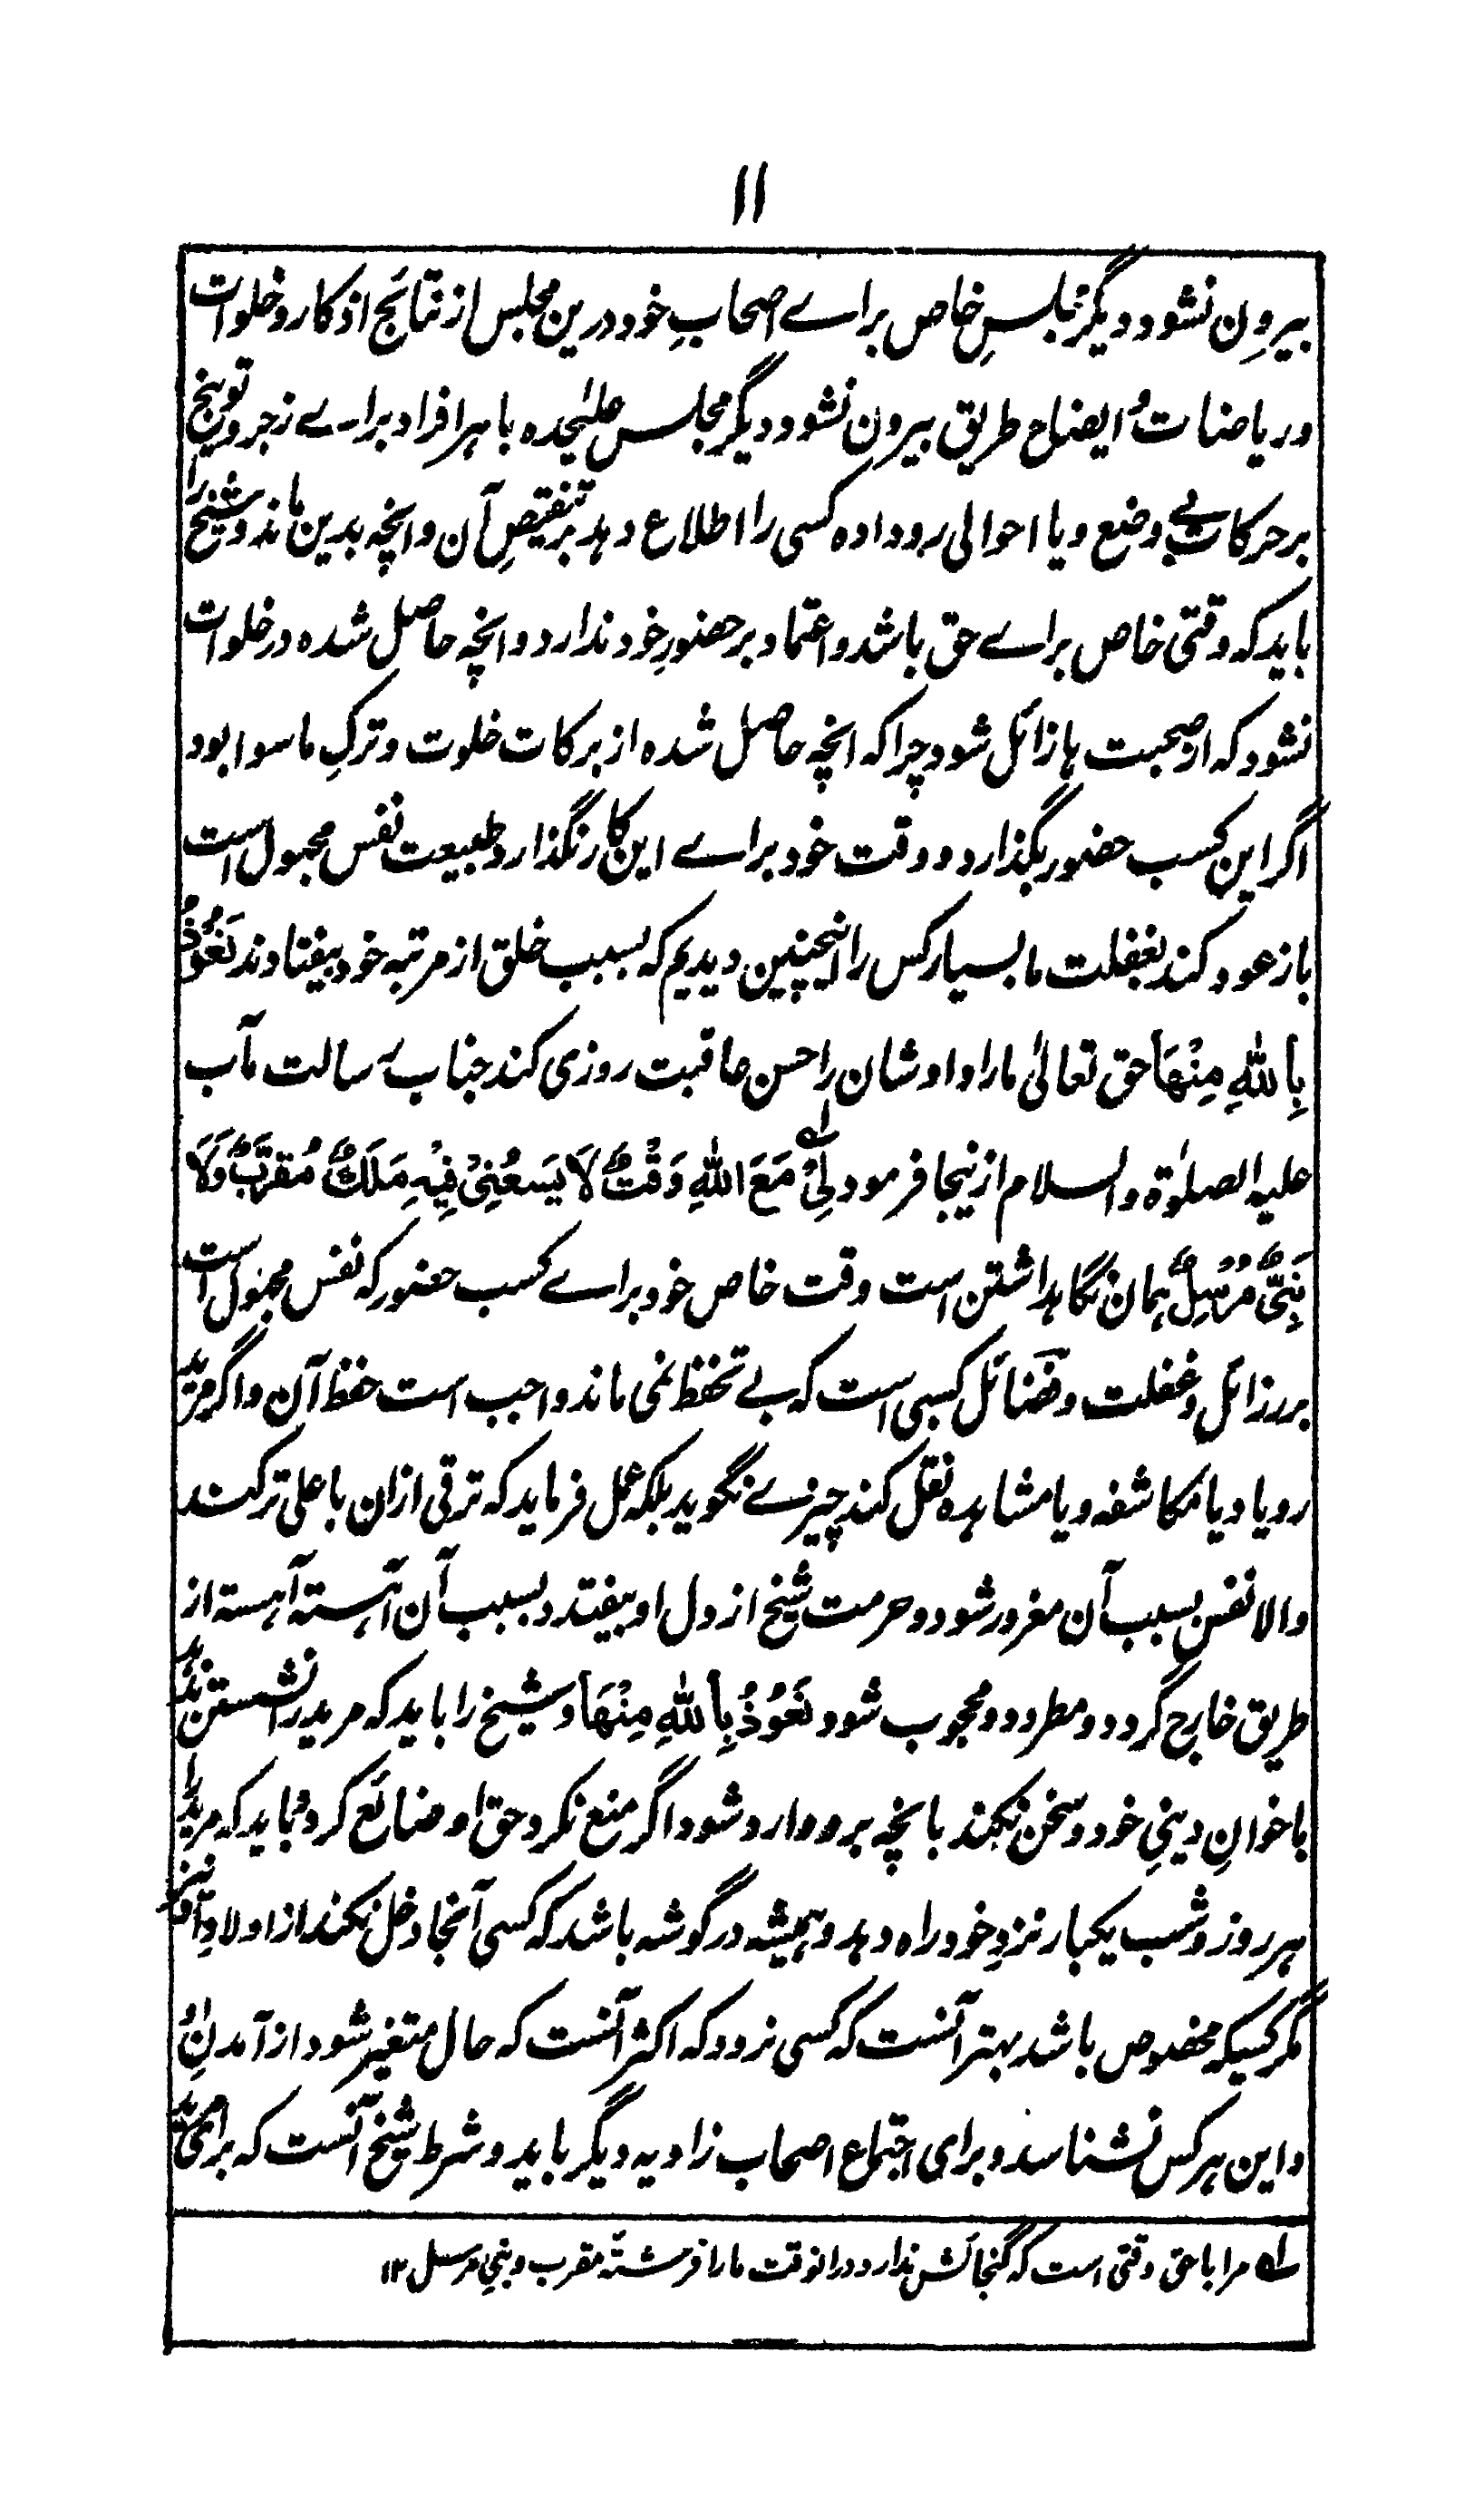 ۱۱
بیرون نشود دیگر مجلسِ خاص براے اصحابِ خود درین مجلس از نتائج اذکار و خلوات
و ریاضات و ایضاح طریق بیرون نشود دیگر مجلس علیٰحدہ با ہر افراد براے زجر و توبیخ
بر حرکاتِ بے وضع و یا احوالی رو دادہ کسی را اطلاع دہد بر تنقیصِ آن و انچہ بدین ماند و شیخ را
باید کہ وقتی خاص براے حق باشد و اعتماد بر حضورِ خود ندارد و انچہ حاصل شدہ در خلوات
نشود کہ از صحبت ہا زائل شود چرا کہ انچہ حاصل شدہ از برکات خلوت و ترکِ ماسوا بود
اگر این کسب حضور بگذارد و وقت خود براے این کار نگذارد طبیعت نفس مجبول است
باز عود کند بغفلت ما بسیار کس را اینچنین دیدیم کہ بسبب خلق از مرتبہ خود بیفتادند نَعُوْذُ
بِاللّٰهِ مِنْهَا حق تعالیٰ ما را و اوشان را حسن عاقبت روزی کند جناب رسالت مآب
علیہ الصلوٰۃ والسلام ازینجا فرمود لِیْ مَعَ اللّٰهِ وَقْتٌ لَا یَسَعُنِیْ فِیْهِ مَلَكٌ مُقَرَّبٌ وَلَا
نَبِیٌّ مُرْسَلٌ ہمان نگاہداشتن است وقت خاص خود براے کسب حضور کہ نفس مجبول است
بر رزائل و غفلت و فضائل کسبی است کہ بے تحفظ نمی ماند واجب است حفظ آن و اگر مرید
رویا و یا مکاشفہ و یا مشاہدہ نقل کند چیزے نگوید بلکہ عمل فرماید کہ ترقی ازان با علی تر کند
والا نفس بسبب آن مغرور شود و حرمت شیخ از دل او بیفتد و بسبب آن آہستہ آہستہ از
طریق خارج گردد و مطرود و محجوب شود نَعُوْذُ بِاللّٰهِ مِنْهَا و شیخ را باید کہ مرید را نشستن ندہد
با خوانِ دینیِ خود و سخن نکند بانچہ برو وارد شود اگر منع نکرد حق او ضائع کرد و باید کہ مرید را
ہر روز و شب یکبار نزدِ خود راہ دہد و ہمیشہ در گوشہ باشد کہ کسی آنجا دخل نکند از اولاد
مگر کسیکہ مخصوص باشد بہتر آنست کہ کسی نرود کہ اکثر آنست کہ حال متغیر شود از آمدنِ
و این ہر کس نشناسد و برای اجتماع اصحاب زاویہ دیگر باید و شرط شیخ آنست کہ براے
لہ مرا با حق وقتی است کہ گنجائش ندارد درانوقت ما را فرشتۂ مقرب و نبیِ مرسل ۱۲